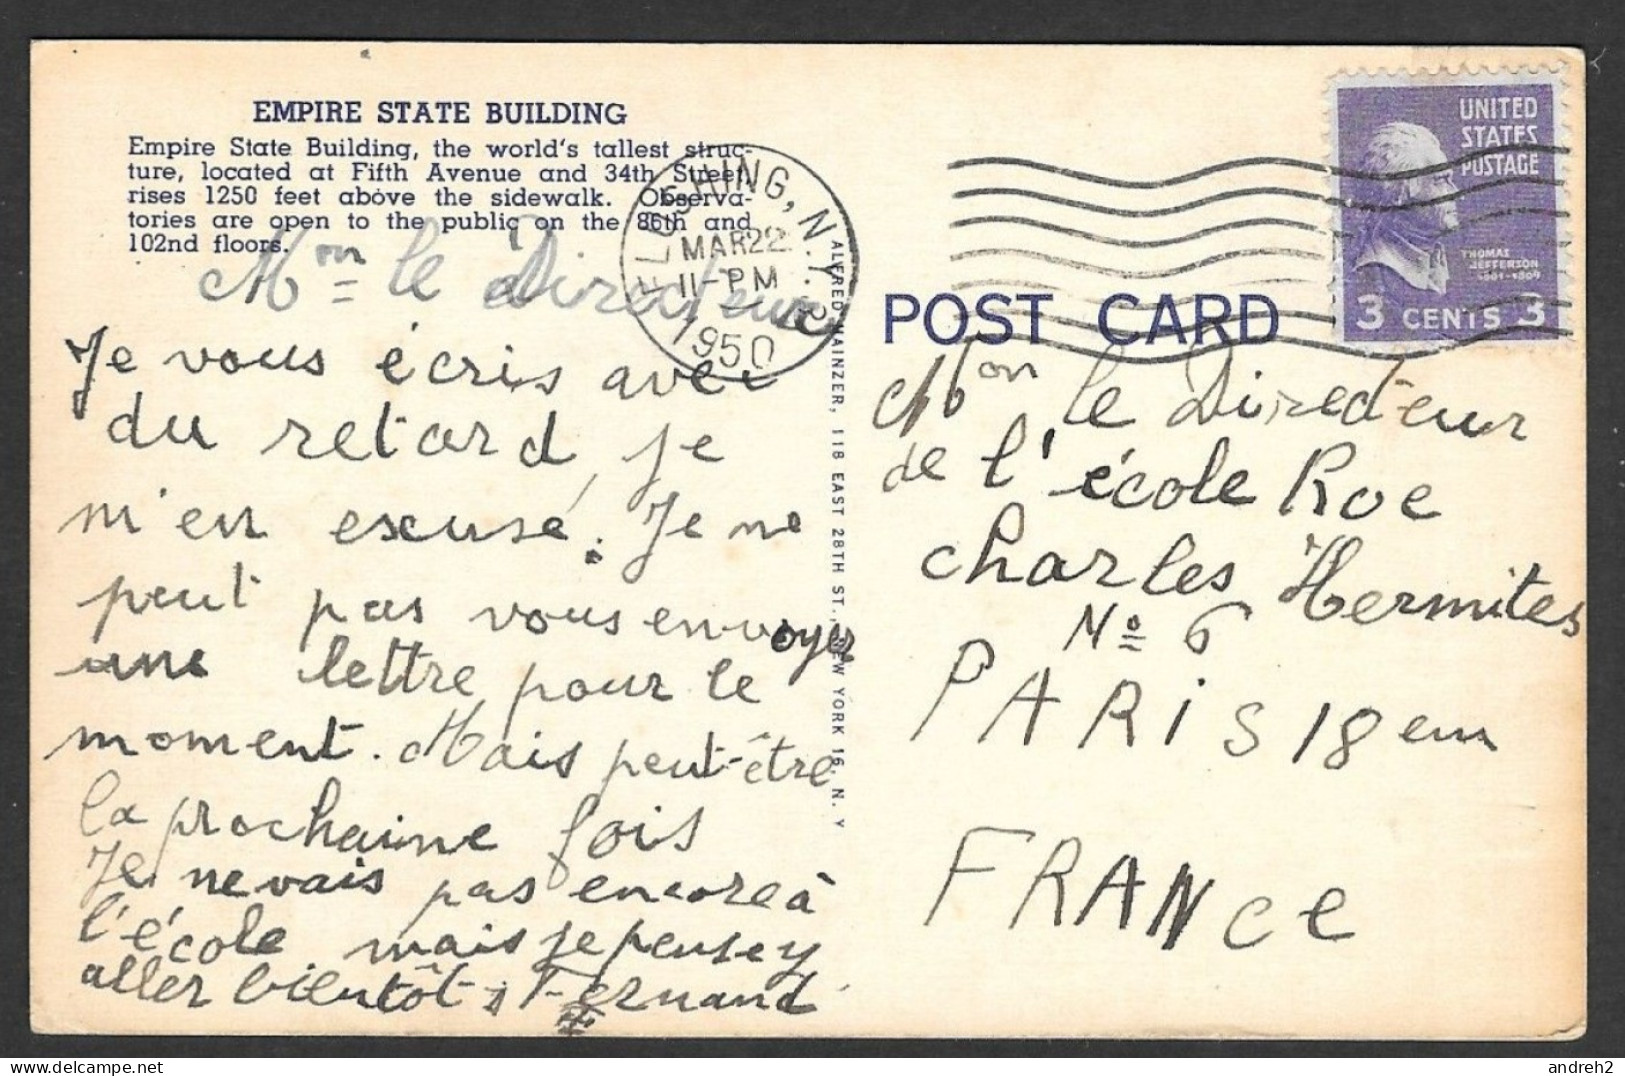 EMPIRE STATE BUILDING
Empire State Building, the world's tallest struc-
ture, located at Fifth Avenue and 34th Street,
rises 1250 feet above the sidewalk. Observa-
tories are open to the public on the 86th and
102nd floors.
Mon le Directeur
Je vous écris avec
du retard, je
m'en excuse. Je ne
peut pas vous envoyer
une lettre pour le
moment. Mais peut-être
la prochaine fois
Je ne vais pas encore à
l'école mais je pense y
aller bientôt Fernand
FLUSHING, N.Y.
MAR 22
11-PM
1950
ALFRED MAINZER, 118 EAST 28TH ST., NEW YORK 16, N. Y
UNITED
STATES
POSTAGE
THOMAS
JEFFERSON
1801-1809
3 CENTS 3
POST CARD
Mon le Directeur
de l'école Rue
Charles Hermites
No 6
PARIS 18em
FRANCE
andreh2